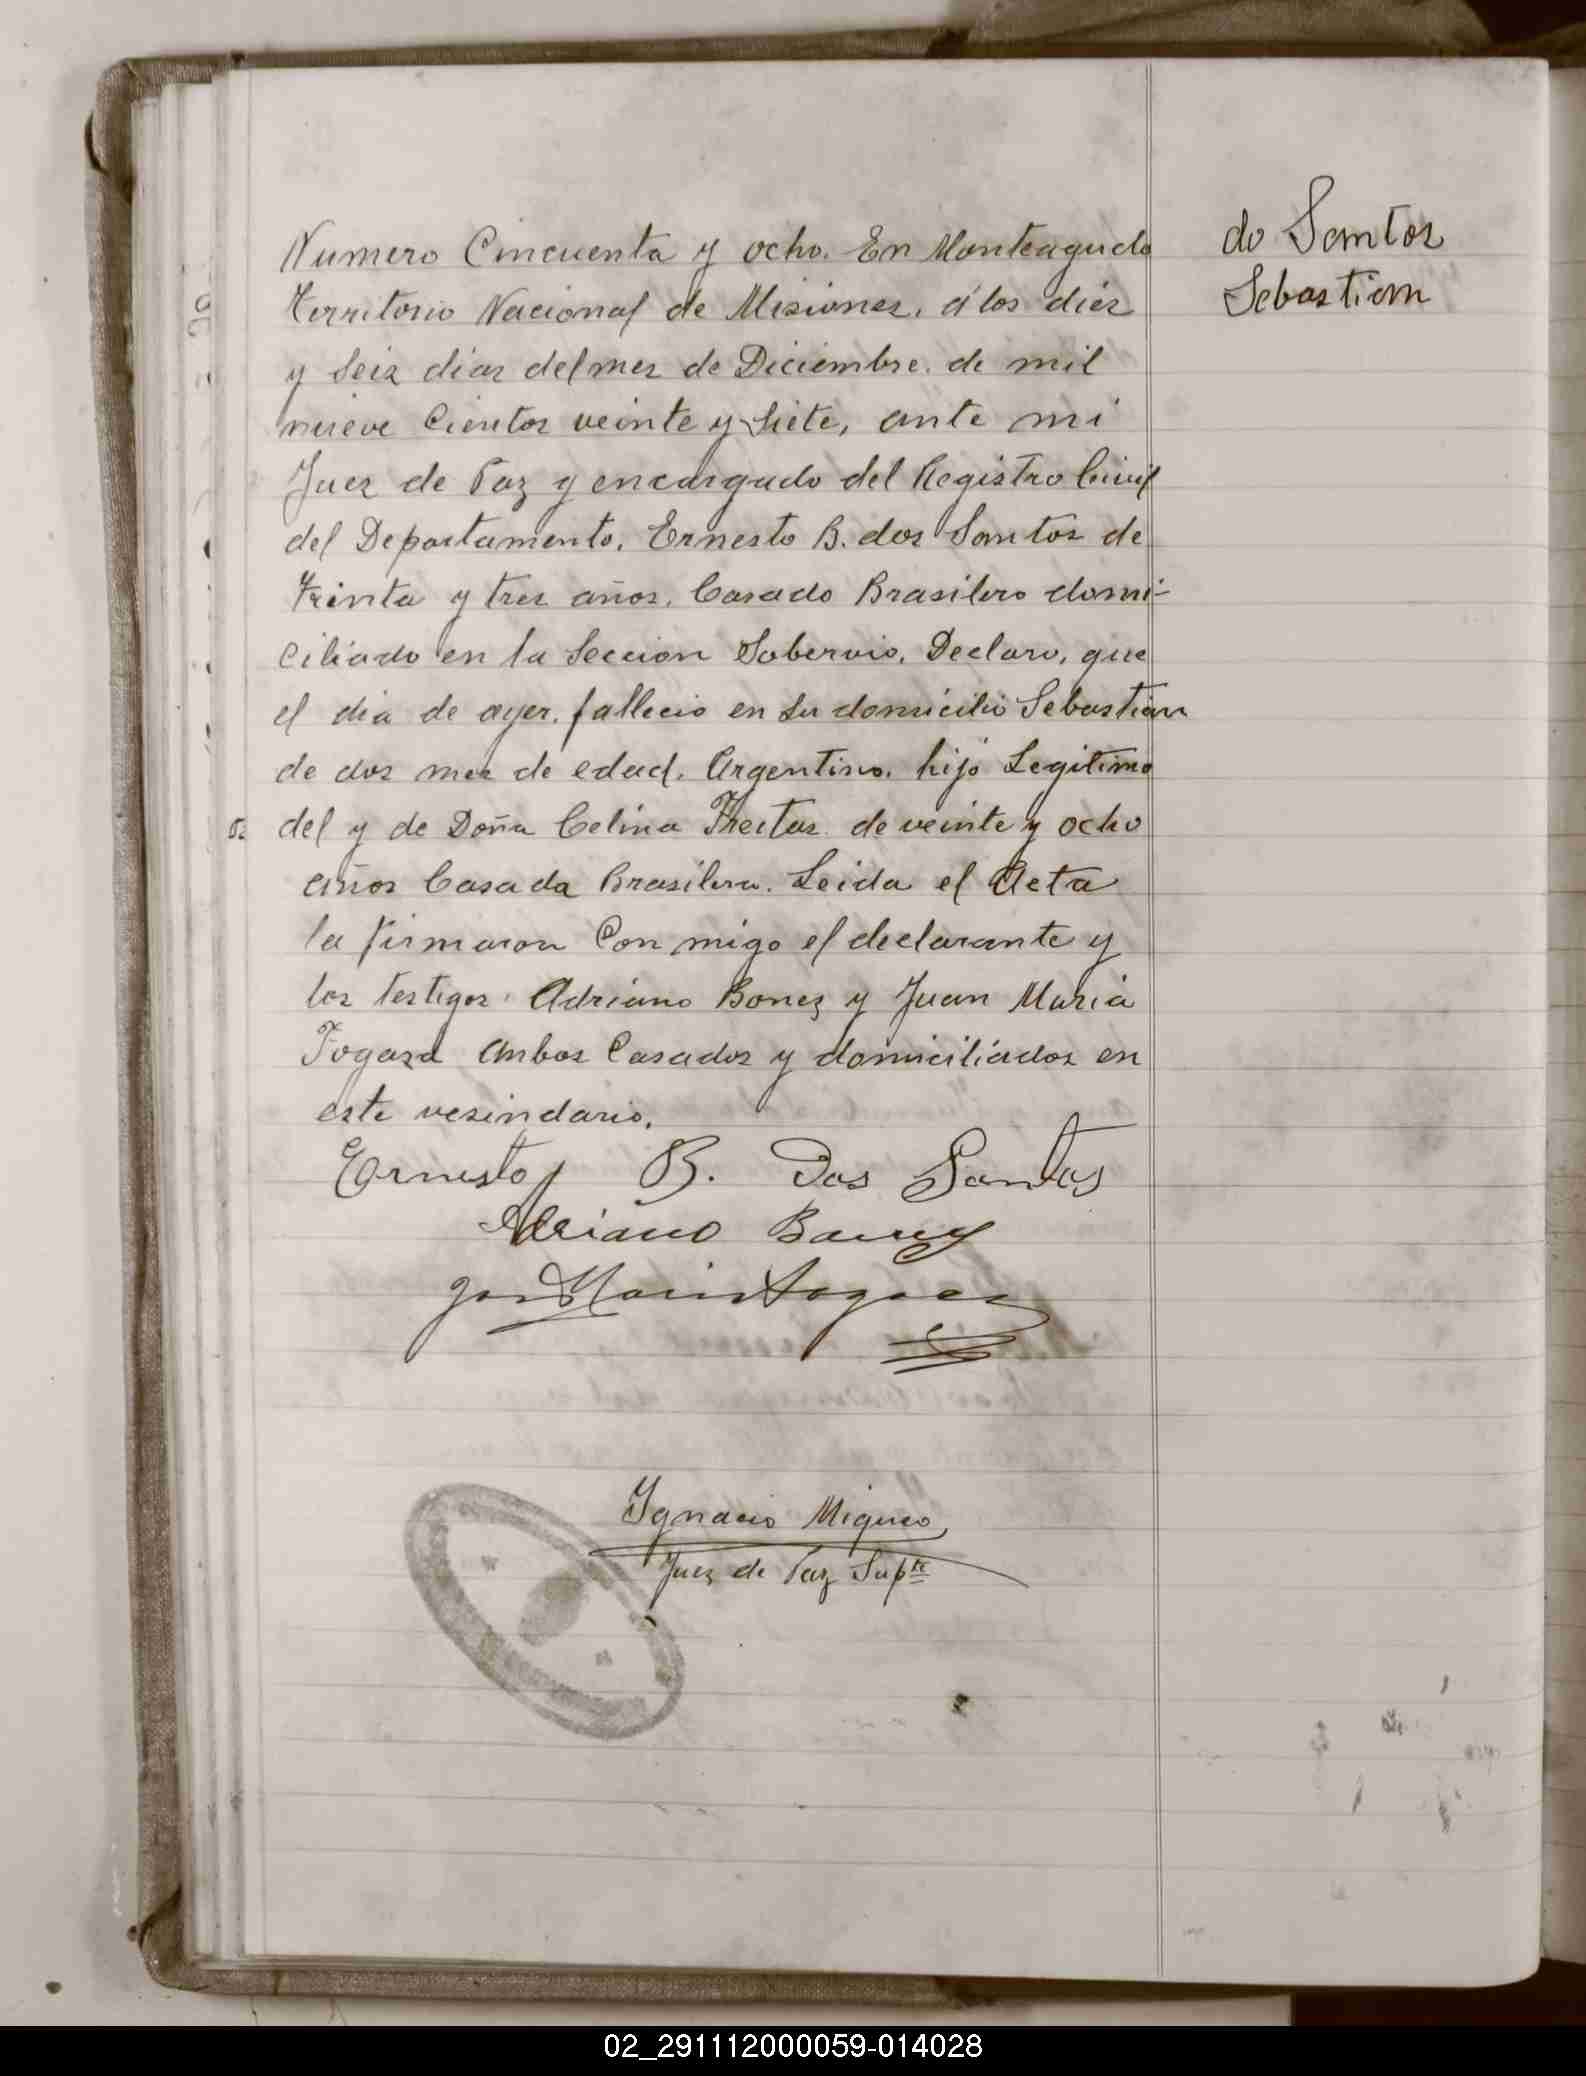 do Santos
Sebastian
Numero Cincuenta y ocho. En Monteagudo
Territorio Nacional de Misiones, á los diez
y seis dias del mes de Diciembre. de mil
nueve Cientos veinte y siete, ante mi
Juez de Paz y encargado del Registro Civil
del Departamento. Ernesto B. dos Santos de
trinta y tres años. Casado Brasilero domi-
ciliado en la Seccion Sobervio. Declaro, que
el dia de ayer. fallecio en su domicilio Sebastian
de dos mes de edad. Argentino. hijo Legitimo
del y de Doña Celina Freitas de veinte y ocho
años Casada Brasilera. Leida el Acta
la firmaron Con migo el declarante y
los testigos Adriano Bonez y Juan Maria
Fogaza Ambos Casados y domiciliados en
este vesindario.
Ernesto B. Dos Santos
Adriano
Ignacio Migueo
Juez de Paz Supte
02_291112000059-014028